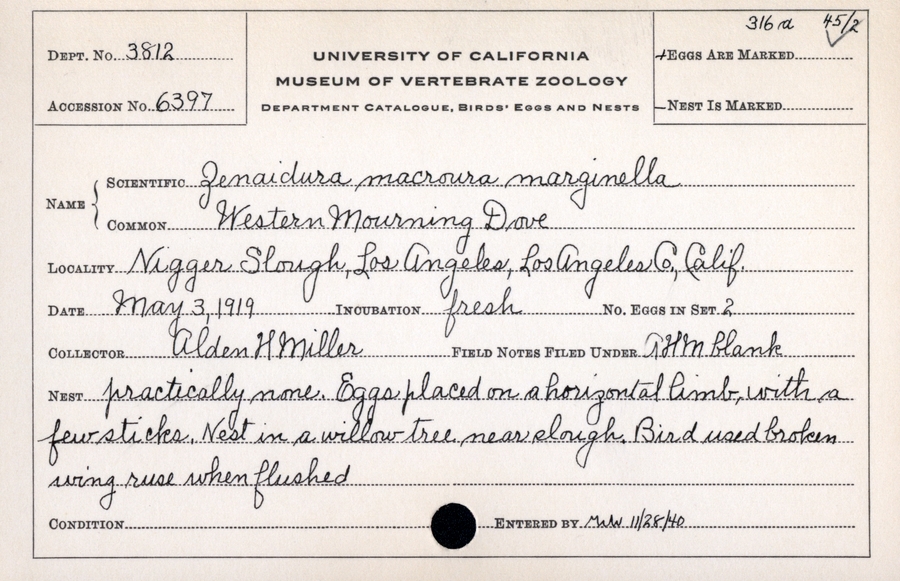 316a 45/2
DEPT. No. 3812
UNIVERSITY OF CALIFORNIA
EGGS ARE MARKED
MUSEUM OF VERTEBRATE ZOOLOGY
ACCESSION No. 6397
DEPARTMENT CATALOGUE, BIRDS' EGGS AND NESTS
NEST IS MARKED
NAME
SCIENTIFIC Zenaidura macroura marginella
COMMON Western Mourning Dove
LOCALITY Nigger Slough, Los Angeles, Los Angeles Co, Calif.
DATE May 3, 1919 INCUBATION fresh No. EGGS IN SET 2
COLLECTOR Alden H Miller FIELD NOTES FILED UNDER AHM blank
NEST practically none. Eggs placed on a horizontal limb, with a
few sticks. Nest in a willow tree near slough. Bird used broken
wing ruse when flushed
CONDITION ENTERED BY 11/28/40